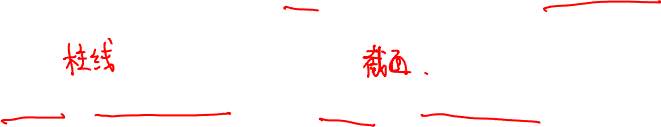 柱线 截面.